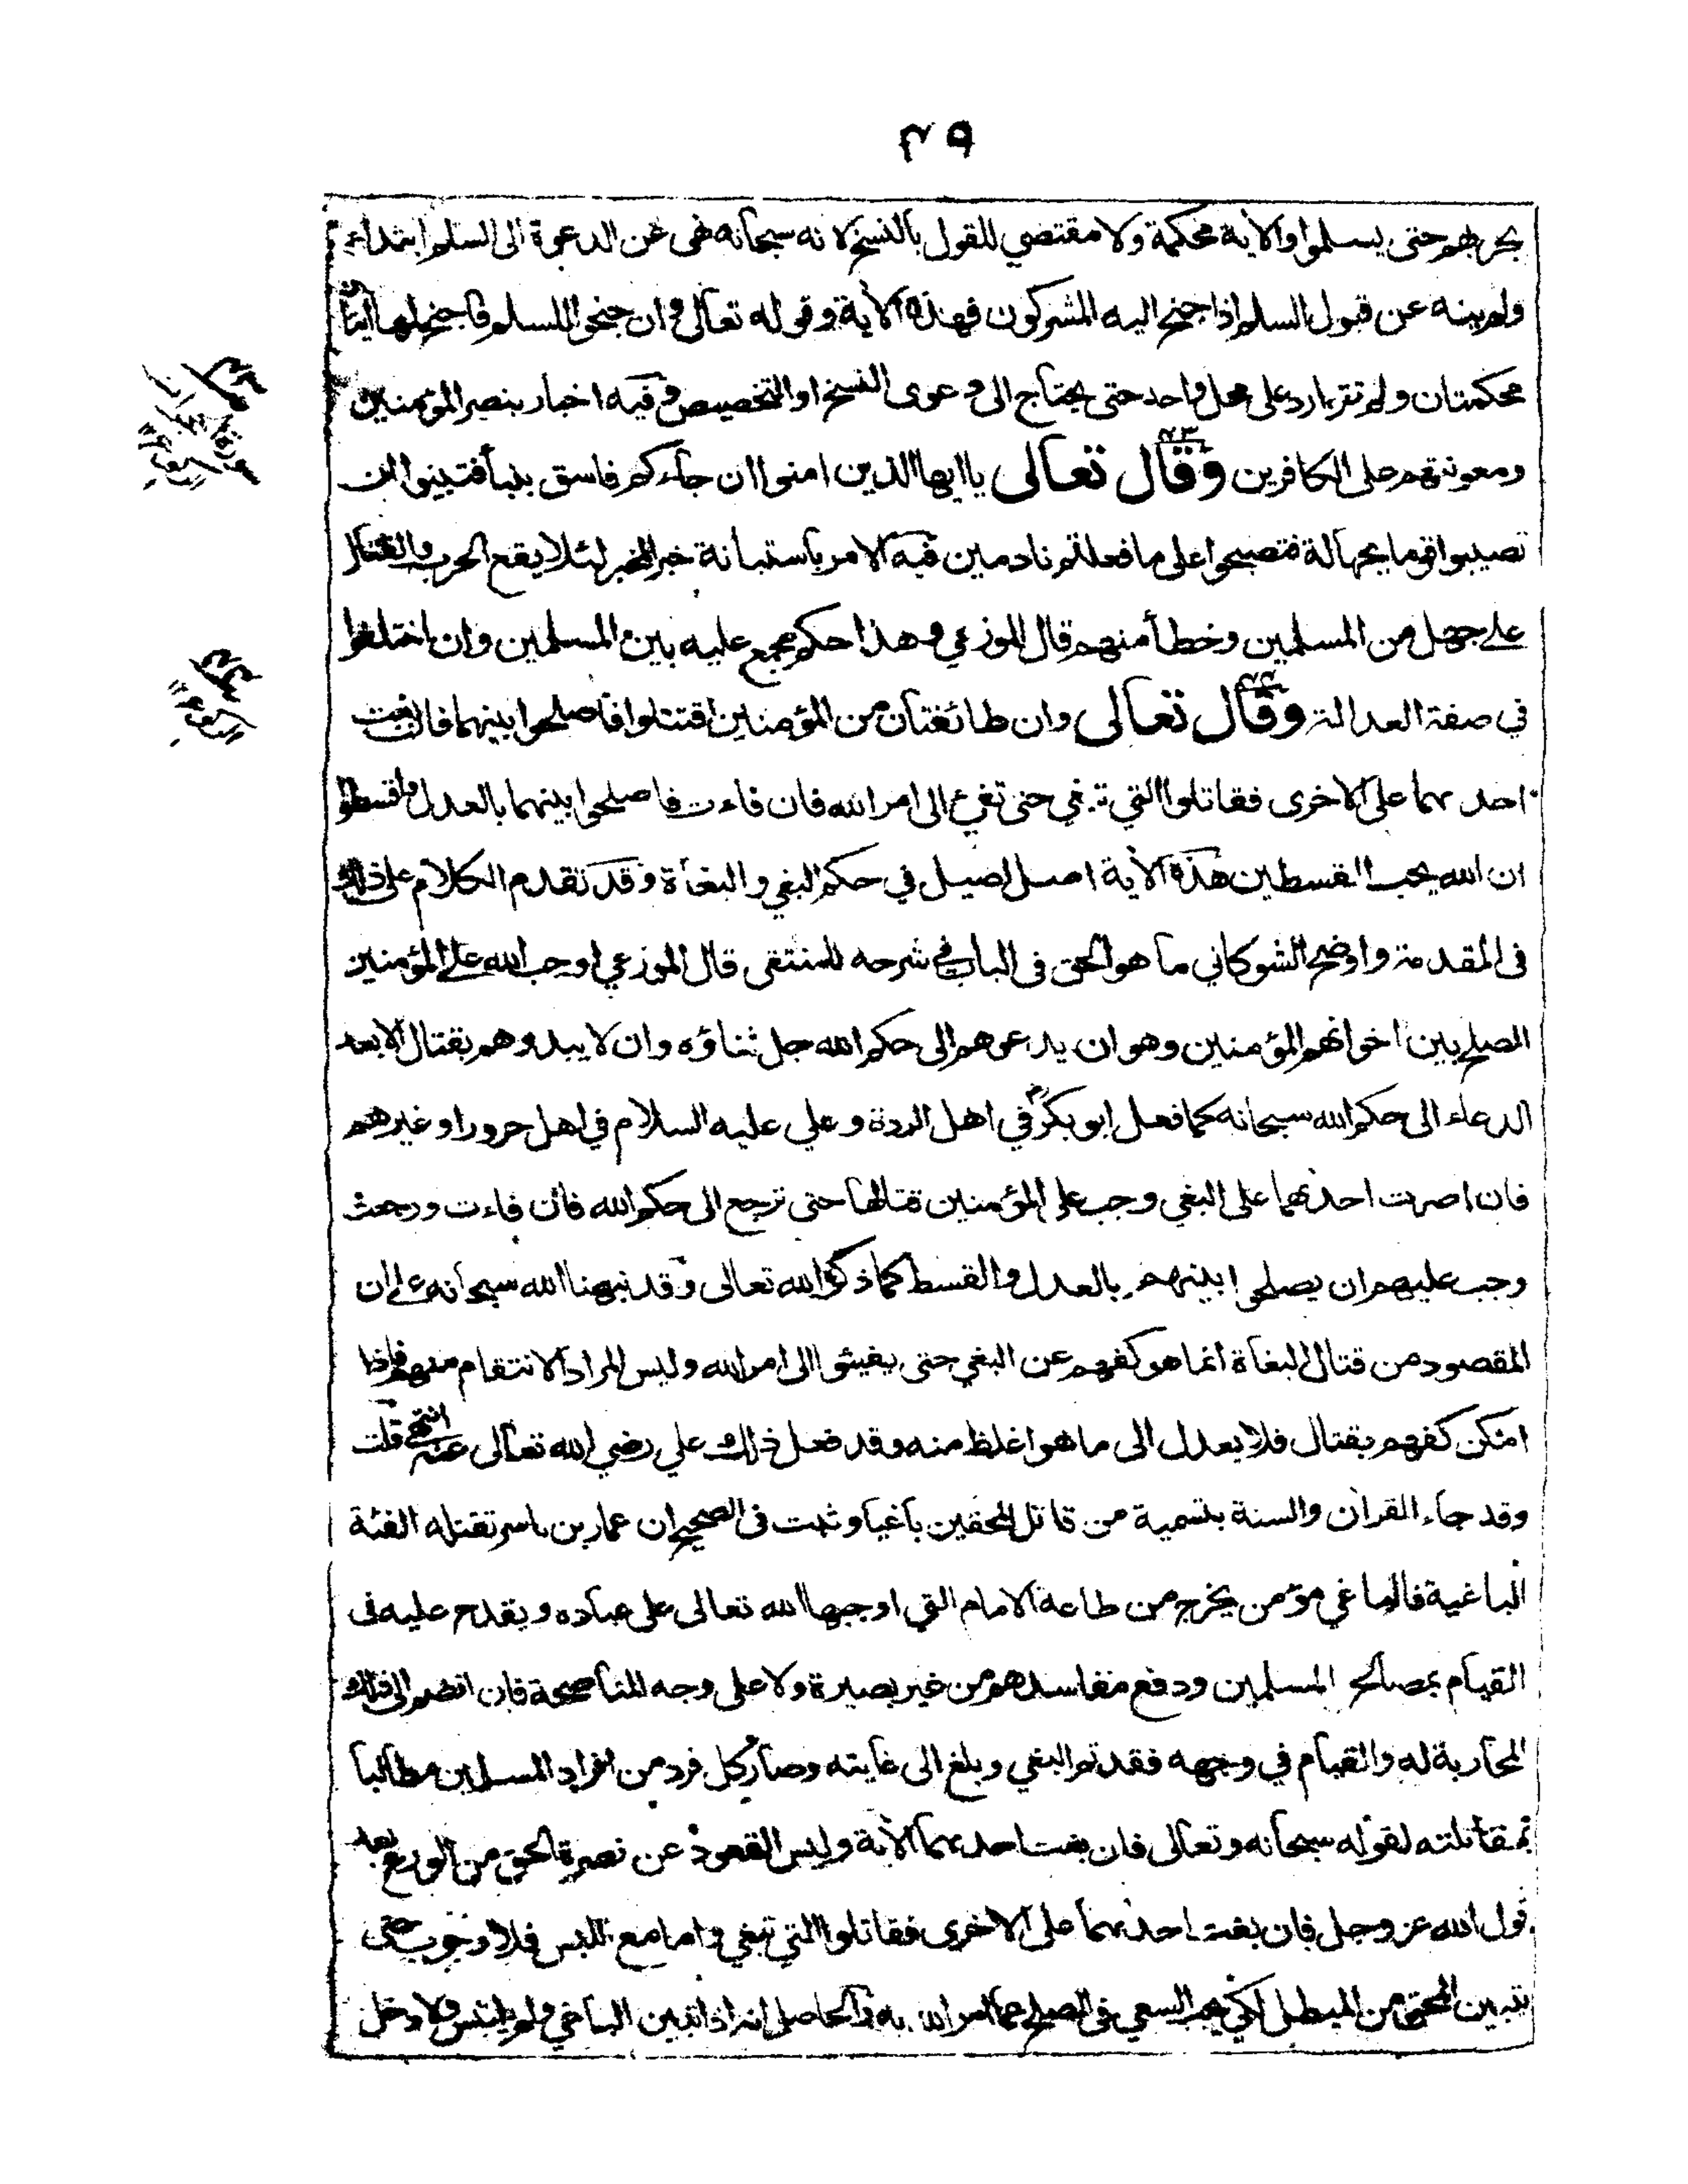 ٤٩
بحربهم حتى يسلموا والآية محكمة ولا مقتضي للقول بالنسخ لانه سبحانه نهى عن الدعوة الى السلم ابتداء
ولم ينه عن قبول السلم اذا جنح اليه المشركون فهذه الآية وقوله تعالى وان جنحوا للسلم فاجنح لها آيتان
محكمتان ولم تتواردا على محل واحد حتى يحتاج الى دعوى النسخ او التخصيص وفيه اخبار بنصر المؤمنين
ومعونتهم على الكافرين وقال تعالى ياايها الذين امنوا ان جاءكم فاسق بنبأ فتبينوا ان
تصيبوا قوما بجهالة فتصبحوا على ما فعلتم نادمين فيه الامر باستبانة خبر المخبر لئلا يقع الحرب والقتال
على جهل من المسلمين وخطأ منهم قال الموزعي وهذا حكم مجمع عليه بين المسلمين وان اختلفوا
في صفة العدالة وقال تعالى وان طائفتان من المؤمنين اقتتلوا فاصلحوا بينهما فان بغت
احدىهما على الاخرى فقاتلوا التي تبغي حتى تفيء الى امر الله فان فاءت فاصلحوا بينهما بالعدل واقسطوا
ان الله يحب المقسطين هذه الآية اصل اصيل في حكم البغي والبغاة وقد تقدم الكلام على ذلك
فى المقدمة واوضح الشوكاني ما هو الحق فى الباب في شرحه للمنتقى قال الموزعي اوجب الله على المؤمنين
الصلح بين اخوانهم المؤمنين وهو ان يدعوهم الى حكم الله جل ثناؤه وان لا يبدوهم بقتال الا بعد
الدعاء الى حكم الله سبحانه كما فعل ابو بكر في اهل الردة وعلي عليه السلام في اهل حرورا وغيرهم
فان اصرت احدىهما على البغي وجب على المؤمنين قتالها حتى ترجع الى حكم الله فان فاءت ورجعت
وجب عليهم ان يصلحوا بينهم بالعدل والقسط كما ذكره الله تعالى وقد نبهنا الله سبحانه على ان
المقصود من قتال البغاة انما هو كفهم عن البغي حتى يفيئوا الى امر الله وليس المراد الانتقام منهم فاذا
امكن كفهم بقتال فلا يعدل الى ما هو اغلظ منه وقد فعل ذلك علي رضي الله تعالى عنه انتهى قلت
وقد جاء القرآن والسنة بتسمية من قاتل المحقين باغيا وثبت فى الصحيح ان عمار بن ياسر تقتله الفئة
الباغية فالباغي مؤمن يخرج من طاعة الامام التي اوجبها الله تعالى على عباده ويقدح عليه فى
القيام بمصالح المسلمين ودفع مفاسدهم من غير بصيرة ولا على وجه المناصحة فان انضم الى ذلك
المحاربة له والقيام في وجهه فقد تم البغي وبلغ الى غايته وصار كل فرد من افراد المسلمين مطالبا
بمقاتلته لقوله سبحانه وتعالى فان بغت احدىهما الآية وليس القعود عن نصرة الحق من الورع بعد
قول الله عز وجل فان بغت احدىهما على الاخرى فقاتلوا التي تبغي واما مع اللبس فلا وجوب حتى
يتبين المحق من المبطل لكن يجب السعي فى الصلح كما امر الله به والحاصل انه اذا تبين الباغي ولم يلتبس ولا دخل